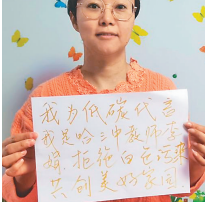 我为低碳代言
我是哈三中教师李
娟,拒绝白色污染
共创美好家园